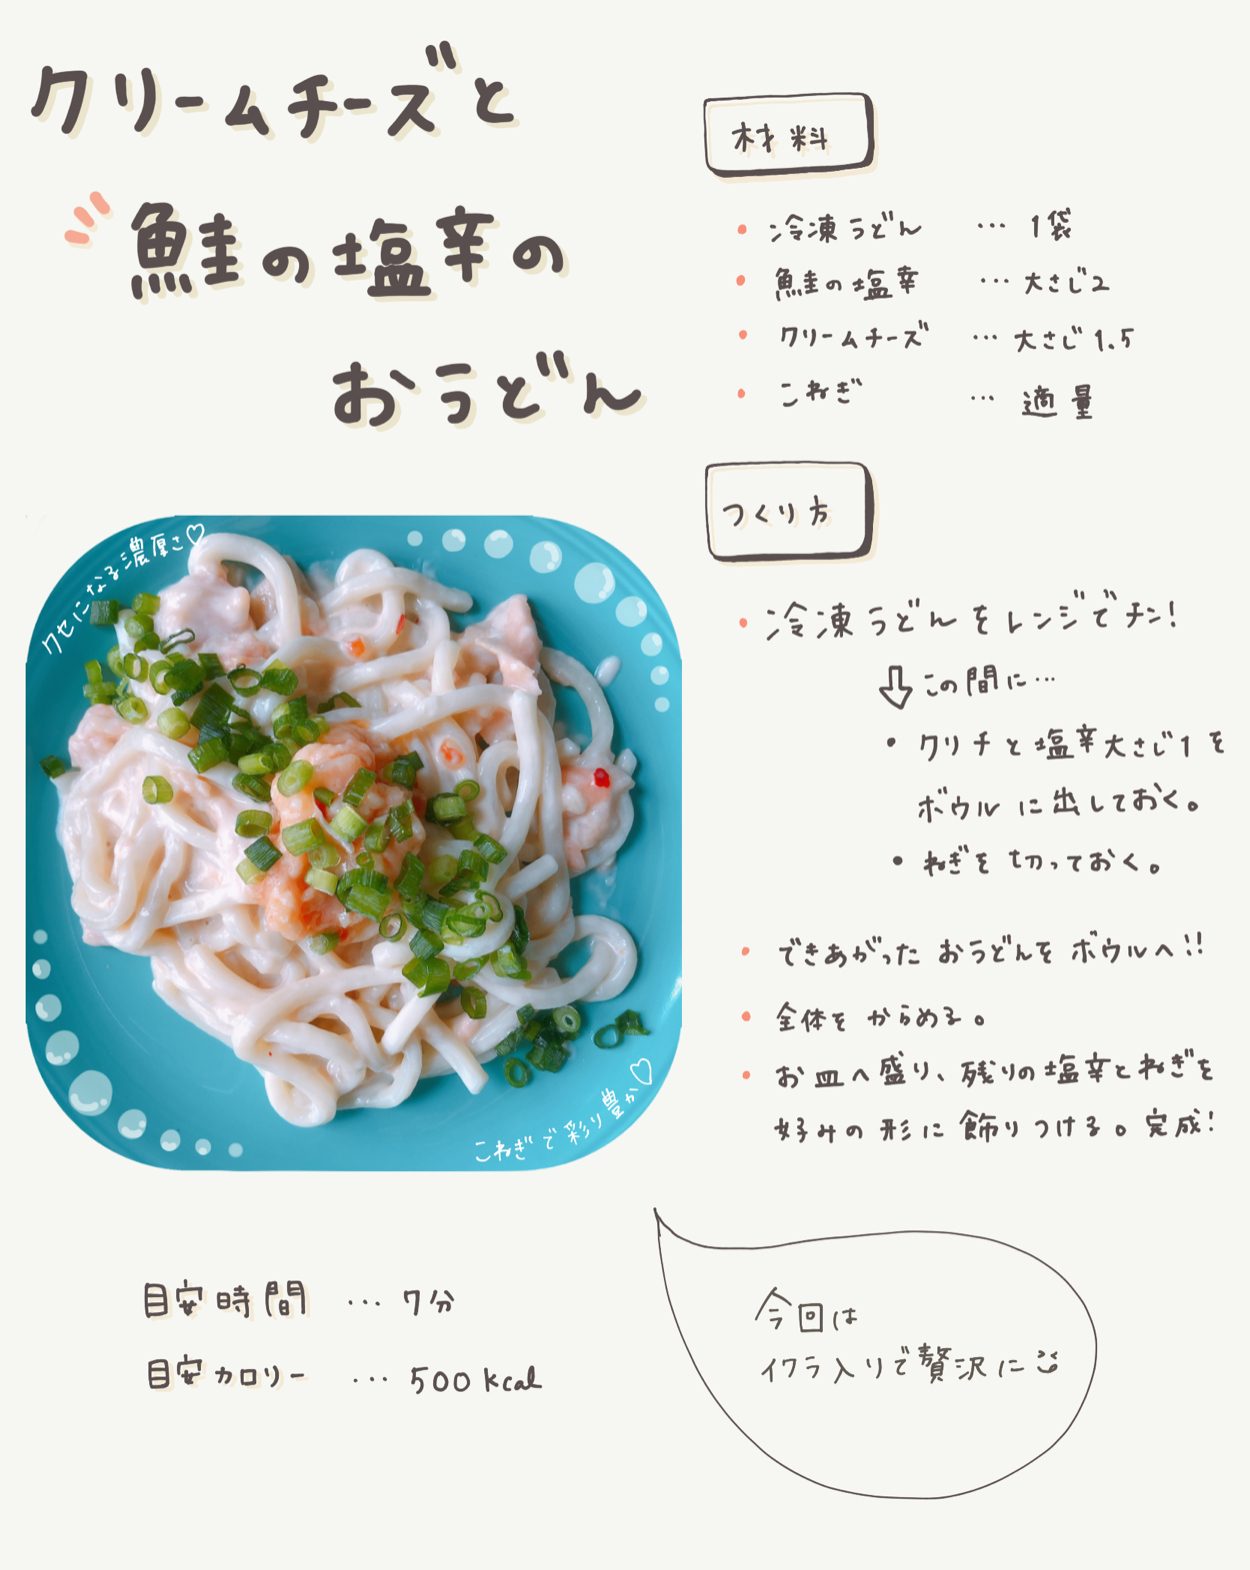 クリームチーズと
鮭の塩辛の
おうどん
材料
・冷凍うどん … 1袋
・鮭の塩辛 … 大さじ2
・クリームチーズ … 大さじ1.5
・こねぎ … 適量
つくり方
・冷凍うどんをレンジでチン!
⇩この間に…
・クリチと塩辛大さじ1を
ボウルに出しておく。
・ねぎを切っておく。
・できあがったおうどんをボウルへ!!
・全体をからめる。
・お皿へ盛り、残りの塩辛とねぎを
好みの形に飾りつける。完成!
クセになる濃厚さ♡
こねぎで彩り豊か♡
目安時間 … 7分
目安カロリー … 500kcal
今回は
イクラ入りで贅沢に